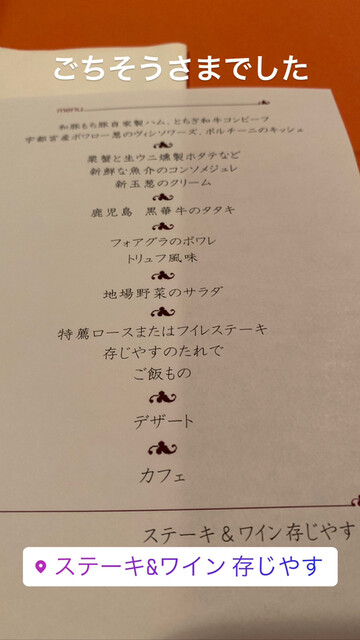 ごちそうさまでした
menu
和豚もち豚自家製ハム、とちぎ和牛コンビーフ
宇都宮産ポワロー葱のヴィシソワーズ、ポルチーニのキッシュ
栗蟹と生ウニ燻製ホタテなど
新鮮な魚介のコンソメジュレ
新玉葱のクリーム
鹿児島 黒華牛のタタキ
フォアグラのポワレ
トリュフ風味
地場野菜のサラダ
特薦ロースまたはフイレステーキ
存じやすのたれで
ご飯もの
デザート
カフェ
ステーキ&ワイン存じやす
ステーキ&ワイン 存じやす